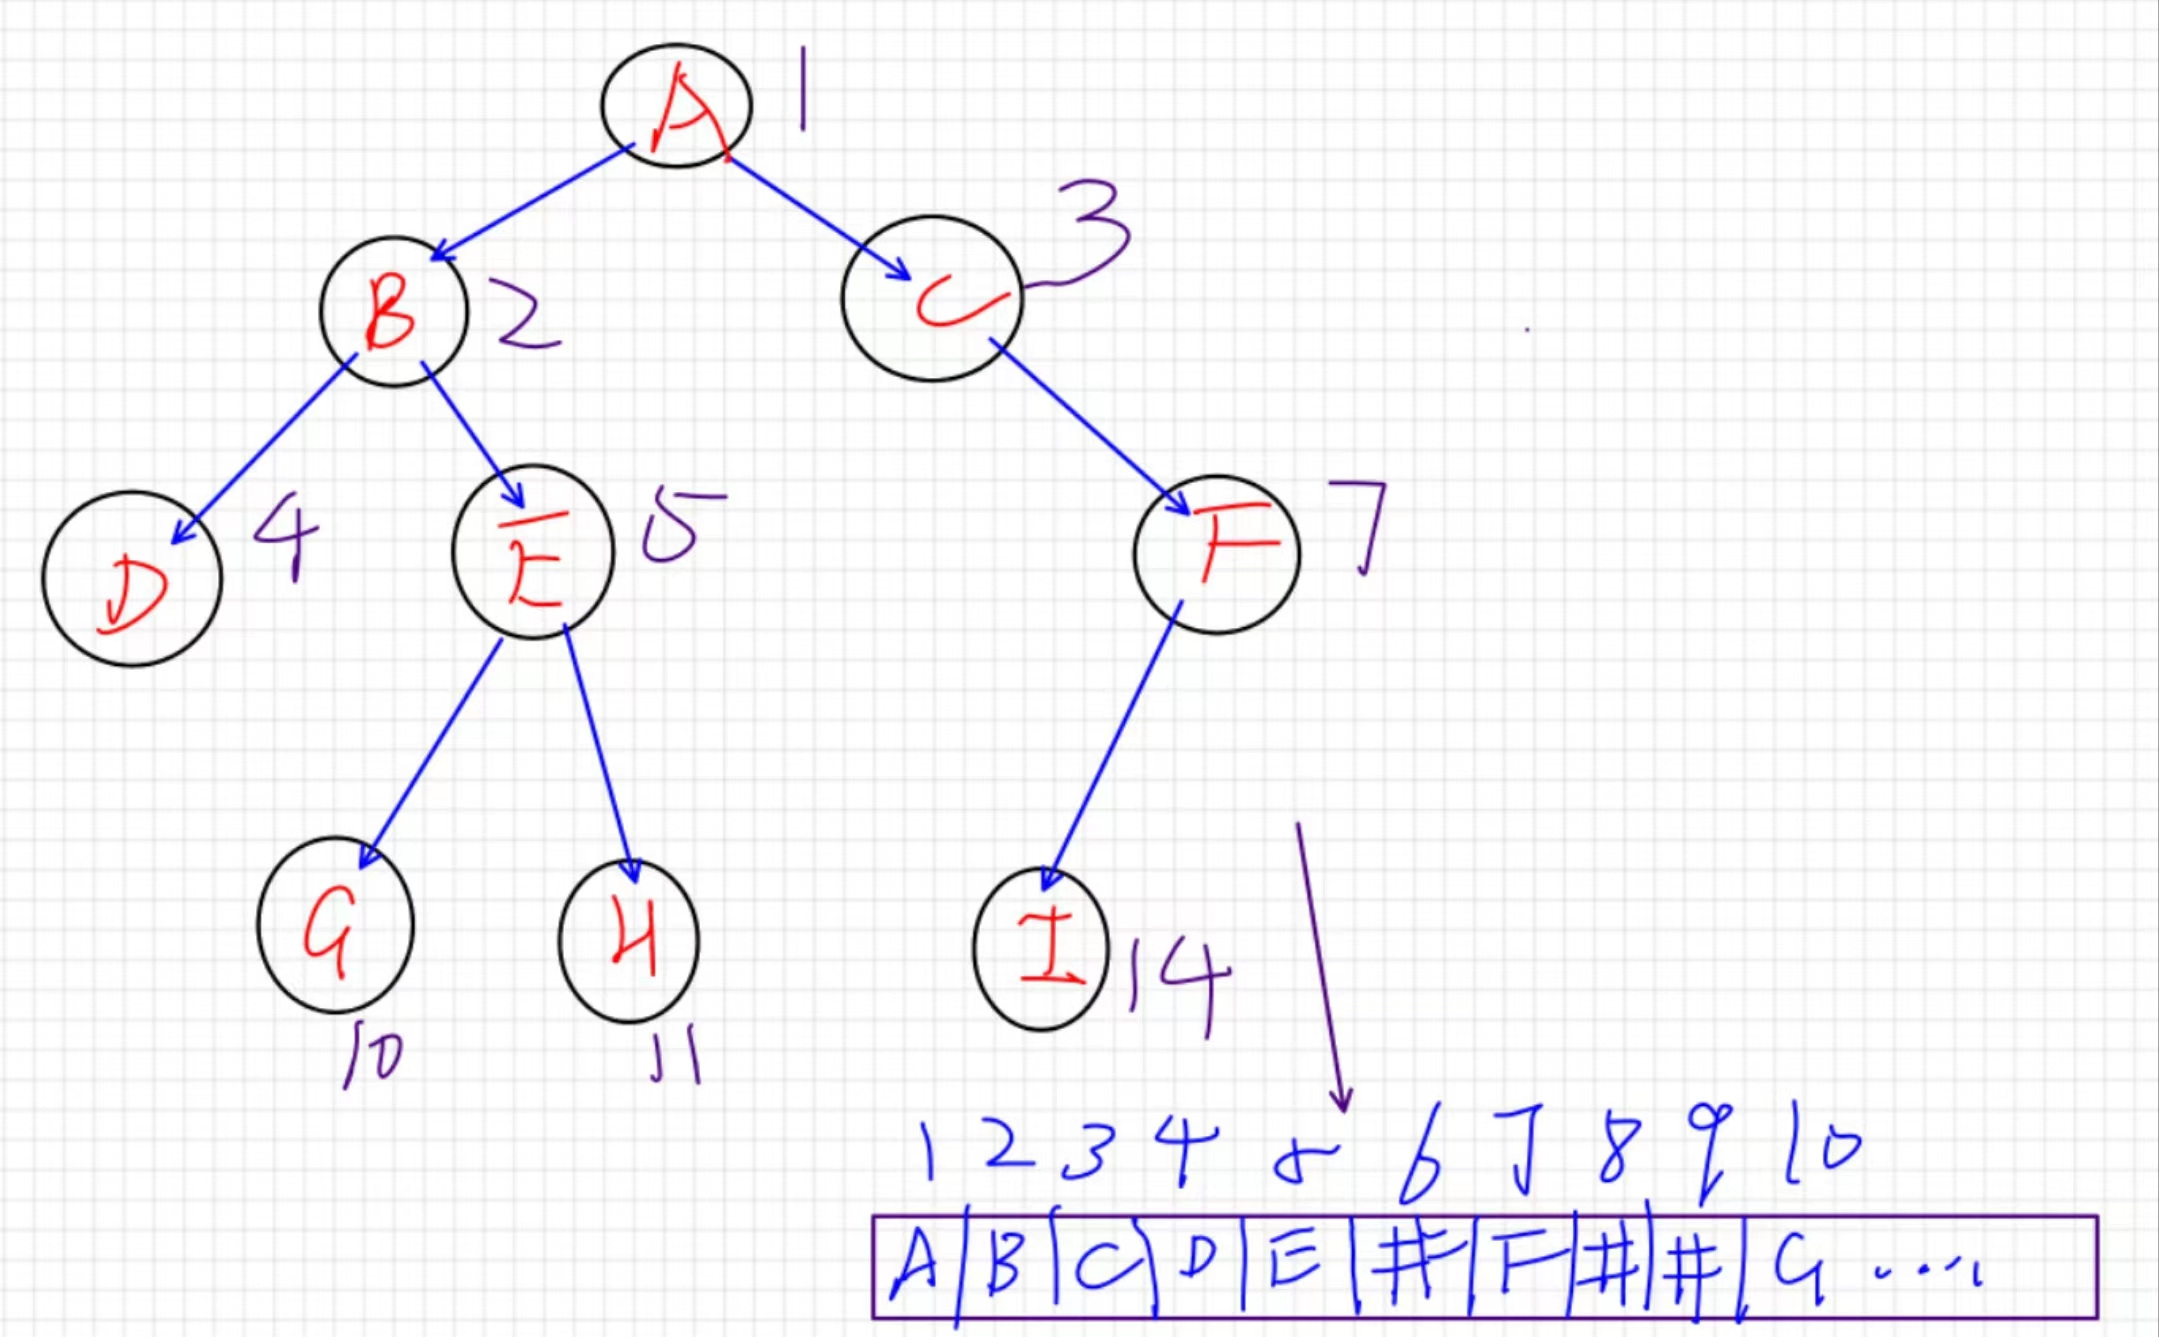 A 1
B 2 C 3
D 4 E 5 F 7
G H I 14
10 11
1 2 3 4 5 6 7 8 9 10
A B C D E # F # # G ....